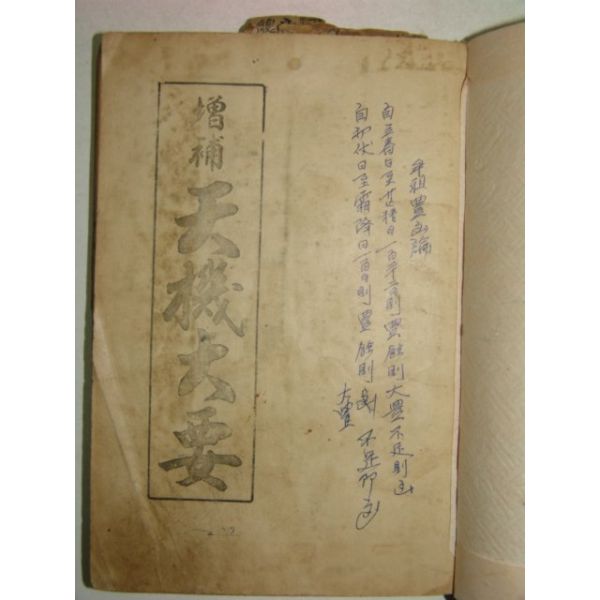 年祖豊凶論
自立春日至芒種日一百二十日則豊 餘則大豊 不足則凶
自初伏日至霜降日一百日則豊 餘則 不足即凶
大豊
增補
天機大要